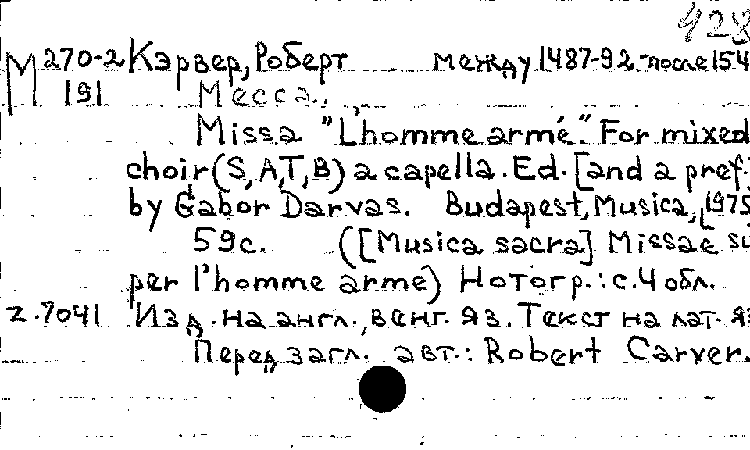 428
М 270-2 Кэрвер, Роберт между 1487-92-после 154
191 Месса.
Missa "Lhomme armé". For mixed
choir (S, A, T, B) a capella. Ed. [and a pref.
by Gabor Darvas. Budapest, Musica, [1975]
59c. ([Musica sacra] Missae su
per l'homme arme) Нотогр.: с. 4 обл.
Z. 7041 Изд. на англ., венг. яз. Текст на лат. яз
Перед загл. авт.: Robert Carver.